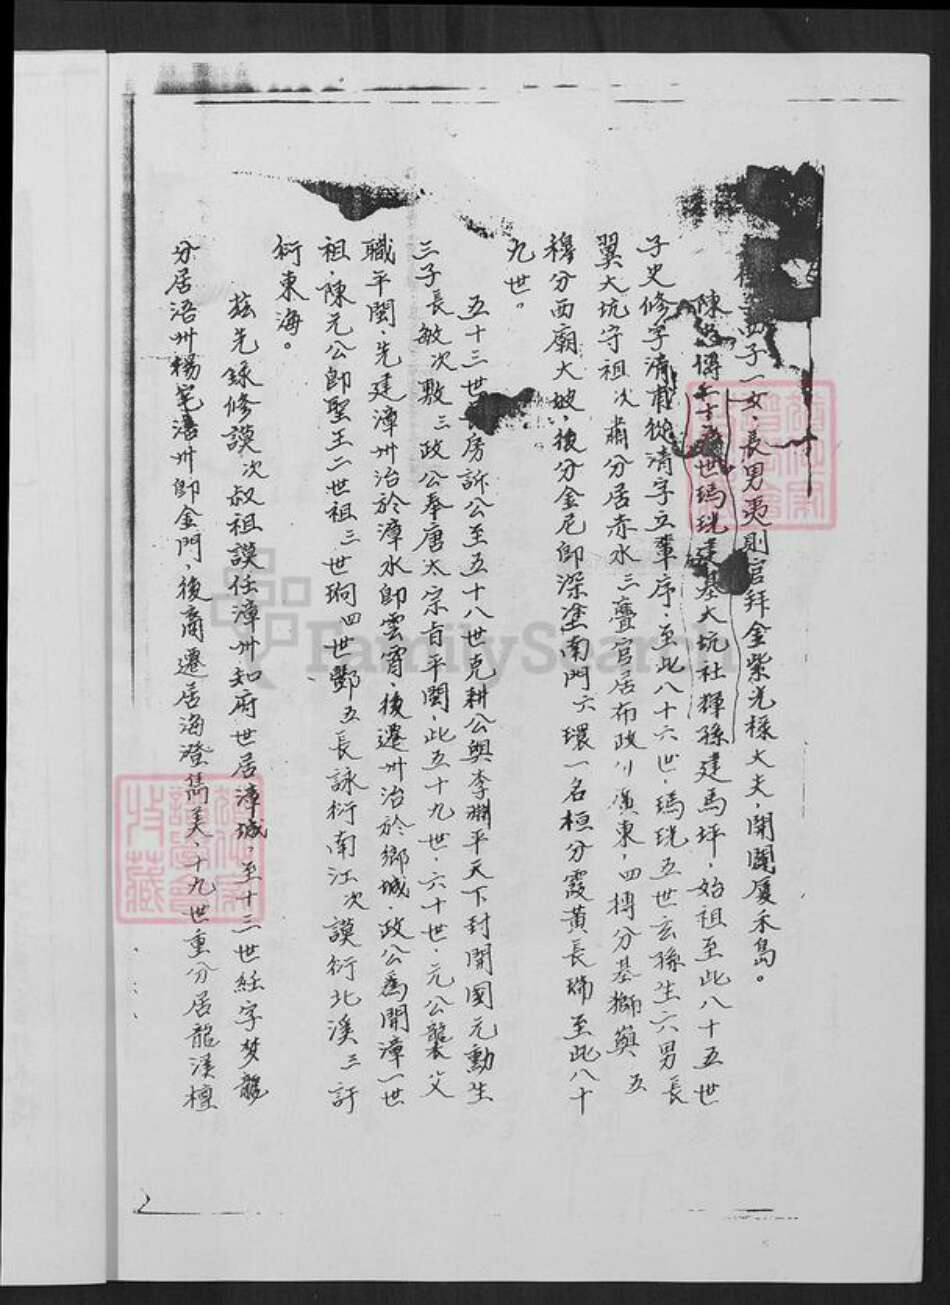 子一女、長男夷則官拜金紫光祿大夫，開闢廈禾島。
陳 世瑪珖建基大坑社輝孫建馬坪，始祖至此八十五世
子史修字清甫從清字立輩序，至此八十六世，瑪珖五世玄孫生六男長
翼大坑守祖次肅分居赤水三疊官居布政 廣東，四摶分基獅巽五
穆分西廟大坡，後分金尼即深塗南門六環一名桓分霞黃長瑞至此八十
九世。
五十三世 房訢公至五十八世克耕公與李淵平天下封開國元勳生
三子長敏次敷三政公奉唐太宗旨平閩，此五十九世，六十世，元公襲父
職平閩，先建漳州治於漳水即雲霄，後遷州治於鄉城，政公為開漳一世
祖，陳元公即聖王二世祖三世珦四世酆五長詠衍南江次謨衍北溪三訏
衍東海。
茲先錄修謨次叔祖謨任漳州知府世居漳城，至十三世紝字夢龍
分居浯州楊宅浯州即金門，後裔遷居海澄雋美，十九世重分居龍溪檀
FamilySearch